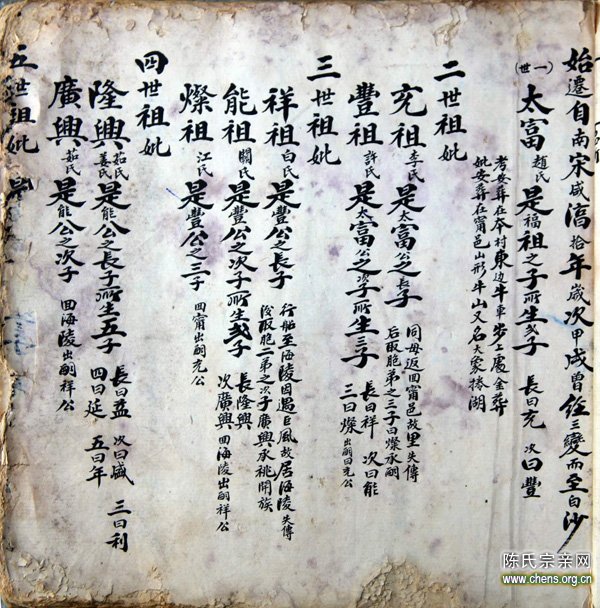 始遷自南宋咸淳拾年歲次甲戌曾經三變而至白沙
(一世)太富趙氏是福祖之子所生弍子 長曰充 次曰豐
考安葬在本村東边牛車步上處金葬
妣安葬在甯邑山形牛山又名大象捲湖
二世祖妣
充祖李氏是太富公之長子 同母返回甯邑故里失傳
后取胞弟之三子曰燦承嗣
豐祖許氏是太富公之次子所生三子 長曰祥 次曰能
三曰燦出嗣曰充公
三世祖妣
祥祖白氏是豐公之長子 行船至海陵因遇巨風故居海陵失傳
後取胞二弟之次子廣興承祧開族
能祖關氏是豐公之次子所生弍子 長隆興
次廣興回海陵出嗣祥公
燦祖江氏是豐公之三子 回甯出嗣充公
四世祖妣
隆興茹氏姜氏是能公之長子所生五子 長曰孟 次曰盛 三曰利
四曰延 五曰年
廣興茹氏是能公之次子 回海陵出嗣祥公
五世祖妣
陈氏宗亲网
www.chens.org.cn